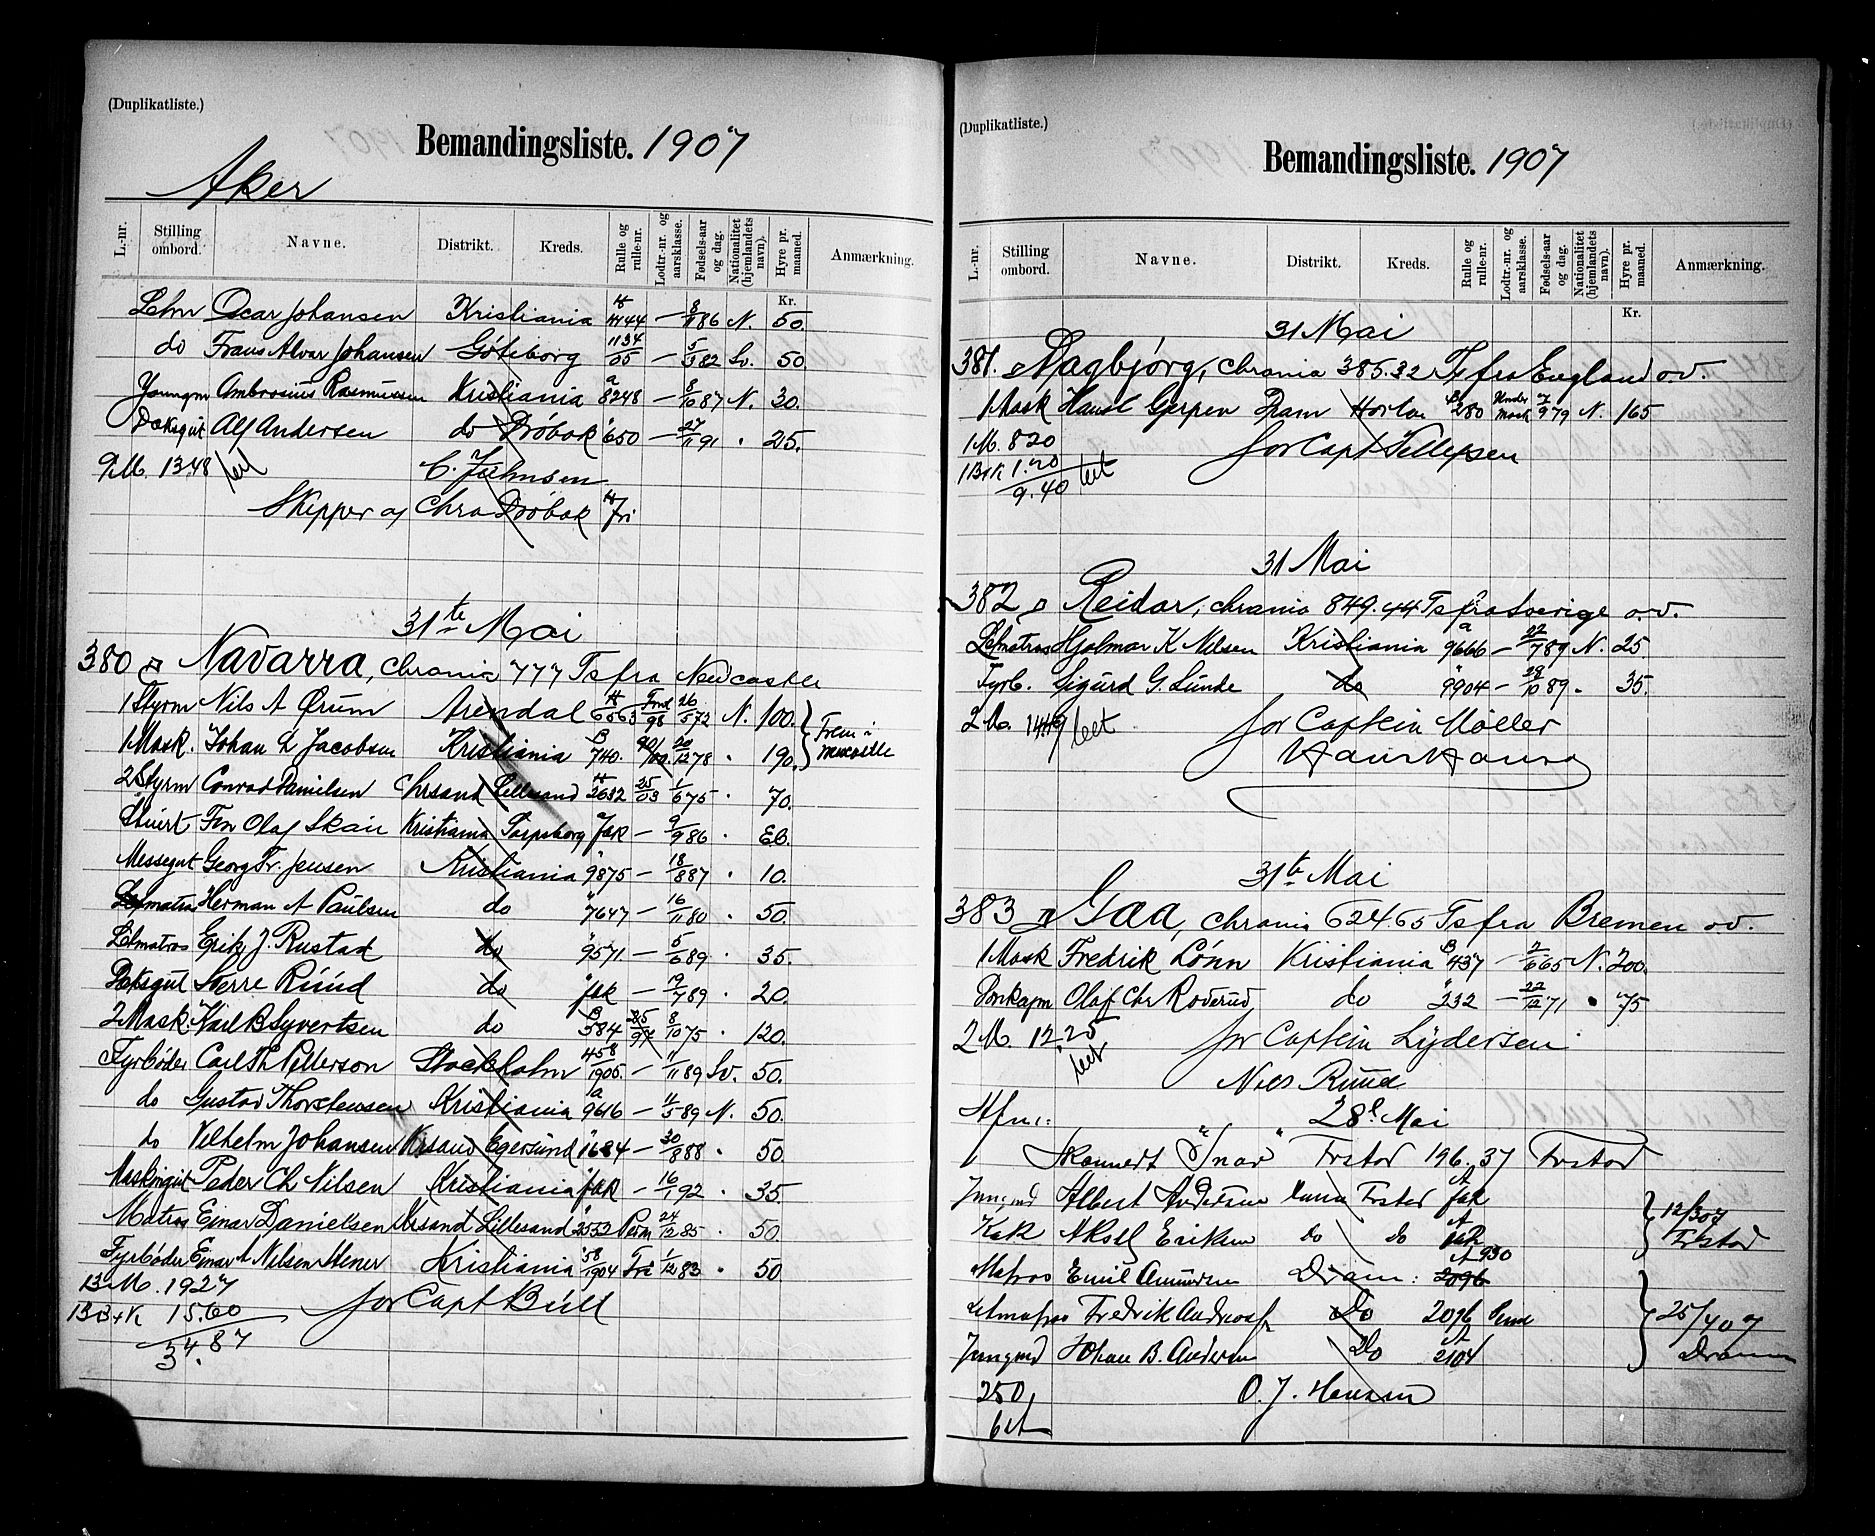 (Duplikatliste.)
Bemandingsliste. 1907
Aker
L.-nr. Stilling ombord. Navne. Distrikt. Kreds. Rulle og rulle-nr. Lodtr.-nr. og aarsklasse. Fødsels-aar og dag. Nationalitet (hjemlandets navn). Hyre pr. maaned. Anmærkning.
Kr.
Oscar Johansen Kristiania 86 N. 50.
do Frans Alvar Johansen Göteborg 1134/05 — 82 Sv. 50.
Youngm Ambrosius Rasmussen Kristiania a 8248 — 8/10 87 N. 30.
Dæksgut Alf Andersen do Dröbak 650 — 27/11 91 25.
9 M. 13.48 bet
Skipper af Chra Dröbak Fri
31te Mai
380 Navarra, Chrania 777 Ts fra Newcastle
1 Styrm Nils A Ørum Arendal 6563 98 26/5 72 N. 100.
1 Mask. Johan L Jacobsen Kristiania B 740. 90/00 20/12 78 190.
Frem i Newcastle
2 Styrm Conrad Danielsen Chrsand Lillesand 2632 25/03 1/6 75 70.
Stuert Fin Olaf Skau Kristiania Sarpsborg Jak — 9/9 86
Messegut Georg Fr. Jensen Kristiania 9875 — 18/8 87 10.
Matros Herman A Paulsen do 7647 — 16/11 80 50.
Letmatros Erik J. Rustad do 9571 — 5/6 89 35.
Dæksgut Sverre Rüüd do Jak — 19/7 89 20.
2 Mask. Karl B Syvertsen do B 584 35/97 8/10 75 120.
Fyrbøder Carl Th Petterson Stockholm 458/1905. — 11/11 89 Sv. 50.
do Gustav Thorstensen Kristiania a 9616 — 11/5 89 N. 50.
do Vilhelm Johansen Krsand Egersund 1684 — 30/8 88 50.
Maskingut Peder Ch Nilsen Kristiania Jak — 16/1 92 35
Matros Einar Danielsen Krsand Lillesand 2553 24/12 85 50.
Fyrbøder Einar A Nilsen Stener Kristiania 58/1904 Fri 1/12 83 50
13 M. 19.27
13 B + K 15.60
34.87
for Capt Büll
(Duplikatliste.)
Bemandingsliste. 1907
L.-nr. Stilling ombord. Navne. Distrikt. Kreds. Rulle og rulle-nr. Lodtr.-nr. og aarsklasse. Fødsels-aar og dag. Nationalitet (hjemlandets navn). Hyre pr. maaned. Anmærkning.
Kr.
31 Mai
381. Dagbjørg, Chrania 385.32 Ts fra England o.v.
1 Mask Hansl Gerpen Dram Horten B 280 79 N. 165
1 M. 8 20
1 B + K 1.20
9.40 bet
for Capt Tellefsen
31 Mai
382 Reidar, Chrania 849.44 Ts fra Sverige o.v.
Letmatros Hjalmar K Nilsen Kristiania a 9666 — 22/7 89 N. 25.
Fyrb. Sigurd G. Lunde do 9904 — 29/10 89 35.
2 M. bet
for Captein Møller
Hans Hansen
31te Mai
383 Gaa, Chrania 624.65 Ts fra Bremen o.v.
1 Mask Fredrik Lönn Kristiania B 437 — 2/6 65 N. 200.
Donkeym Olaf Chr Roverud do 232 — 22/12 71 75
2 M. 12.25
bet
for Captein Lydersen
Nils Ruud
28de Mai
Skonnert "Snar" Frstad 196.37 Frstad
Albert Andersen Frstad Jak
Kok Aksel Eriksen do do
12/3 07
Frstad
Matros Emil Amundsen Dram: A 930
Letmatros Fredrik Do 2096
Jungmd Johan B. Andersen Do 2104
25/4 07
Dram
250
bet
O. J. Hansen